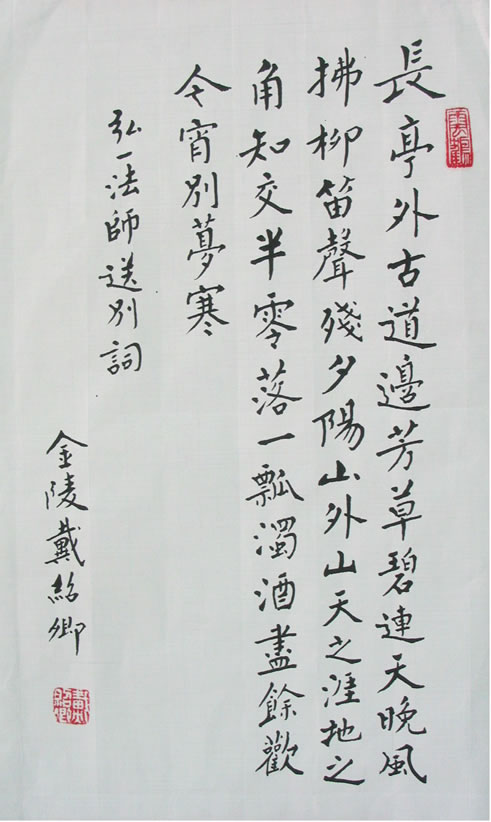 長亭外古道邊芳草碧連天晚風
拂柳笛聲殘夕陽山外山天之涯地之
角知交半零落一瓢濁酒盡餘歡
今宵別夢寒
弘一法師送別詞
金陵戴紹卿